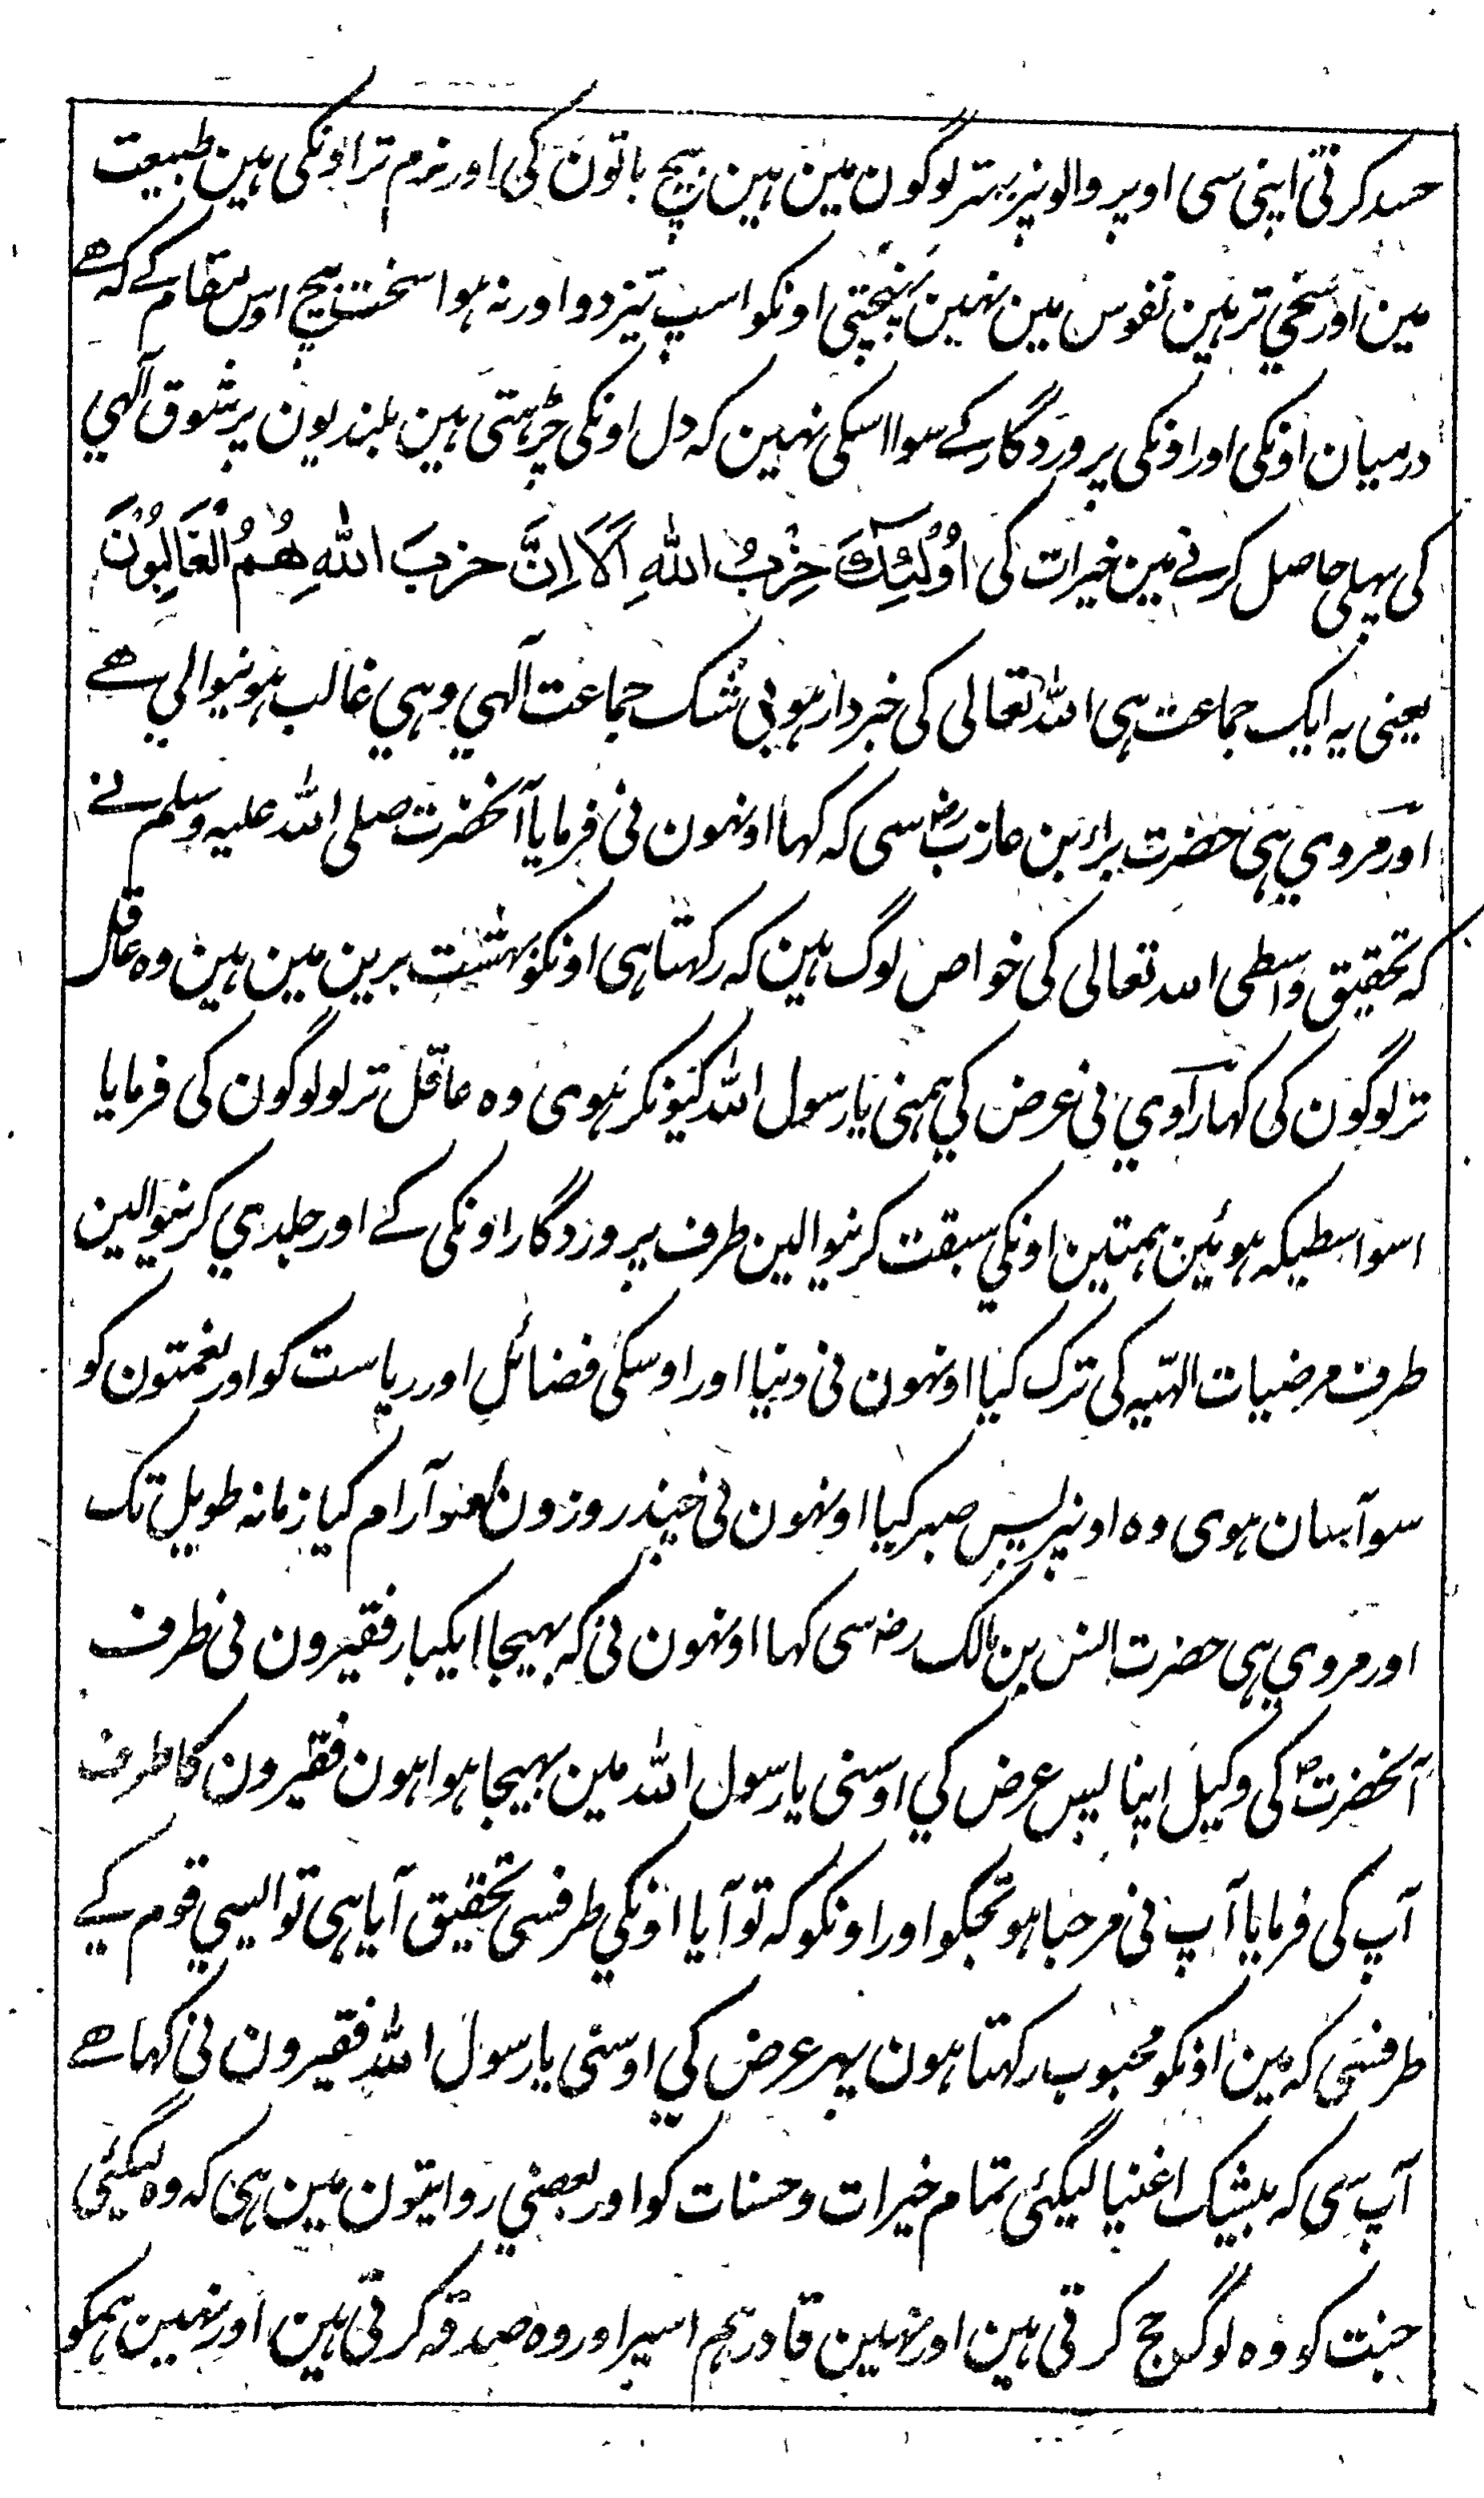 حسد کرتی اپنی سی اوپر والونپر بہتر لوگون مین ہین بیچ باتون کی اور نرم تر اونکی ہین طبیعت
مین اور سخی تر ہین نفوس مین نہین پہنچتی اونکو اسپ تیز دو اور نہ ہوا سخت بیچ اوس مقام کے کہ ھے
درمیان اونکی اور اونکی پروردگار کے سوا اسکی نہین کہ دل اونکی چڑہتی ہین بلندیون پر شوق آلٰہی
کی پہلی حاصل کرنے مین خیرات کی اُولٰئِكَ حِزْبُ اللهِ اَلَا اِنَّ حِزْبَ اللهِ هُمُ الْغَالِبُوْنَ
یعنی یہ ایک جماعت ہی اللہ تعالی کی خبردار ہو بی شک جماعت آلہی وہی غالب ہونیوالی ھے
اور مروی ہی حضرت براء بن عازب رض سی کہ کہا اونہون نی فرمایا آنحضرت صلی اللہ علیہ وسلم نے
کہ تحقیق واسطی اللہ تعالی کی خواص لوگ ہین کہ رکہتا ہی اونکو بہشت برین مین ہین وہ عاقل
تر لوگون کی کہا راوی نی عرض کی ہمنی یا رسول اللہ کیونکر ہوی وہ عاقل تر لوگون کی فرمایا
اسواسطیکہ ہوئین ہمتین اونکی سبقت کرنیوالین طرف پروردگار اونکی کے اور جلدی کرنیوالین
طرف مرضیات الٰہیہ کی ترک کیا اونہون نی دنیا اور اوسکی فضائل اور ریاست کو اور نعمتون کو
سو آسان ہوی وہ اونپر پس صبر کیا اونہون نی چند روزون آرام کیا زمانہ طویل تک
اور مروی ہی حضرت انس بن مالک رض سی کہا اونہون نی کہ بہیجا ایکبار فقیرون نی طرف
آنحضرت ص کی وکیل اپنا پس عرض کی اوسنی یا رسول اللہ مین بہیجا ہوا ہون فقیرون کا طرف
آپ کی فرمایا آپ نی مرحبا ہو تجکو اور اونکو کہ تو آیا اونکی طرفسی تحقیق آیا ہی تو ایسی قوم کے
طرفسی کہ مین اونکو محبوب رکہتا ہون پہر عرض کی اوسنی یا رسول اللہ فقیرون نی کہا ھے
آپ سی کہ بیشک اغنیا لیگئی تمام خیرات و حسنات کو اور بعضی روایتون مین ہی کہ وہ لیگئی
جنت کو وہ لوگ حج کرتی ہین اور نہین قادر ہم اسپر اور وہ صدقہ کرتی ہین اور نہین ہمکو